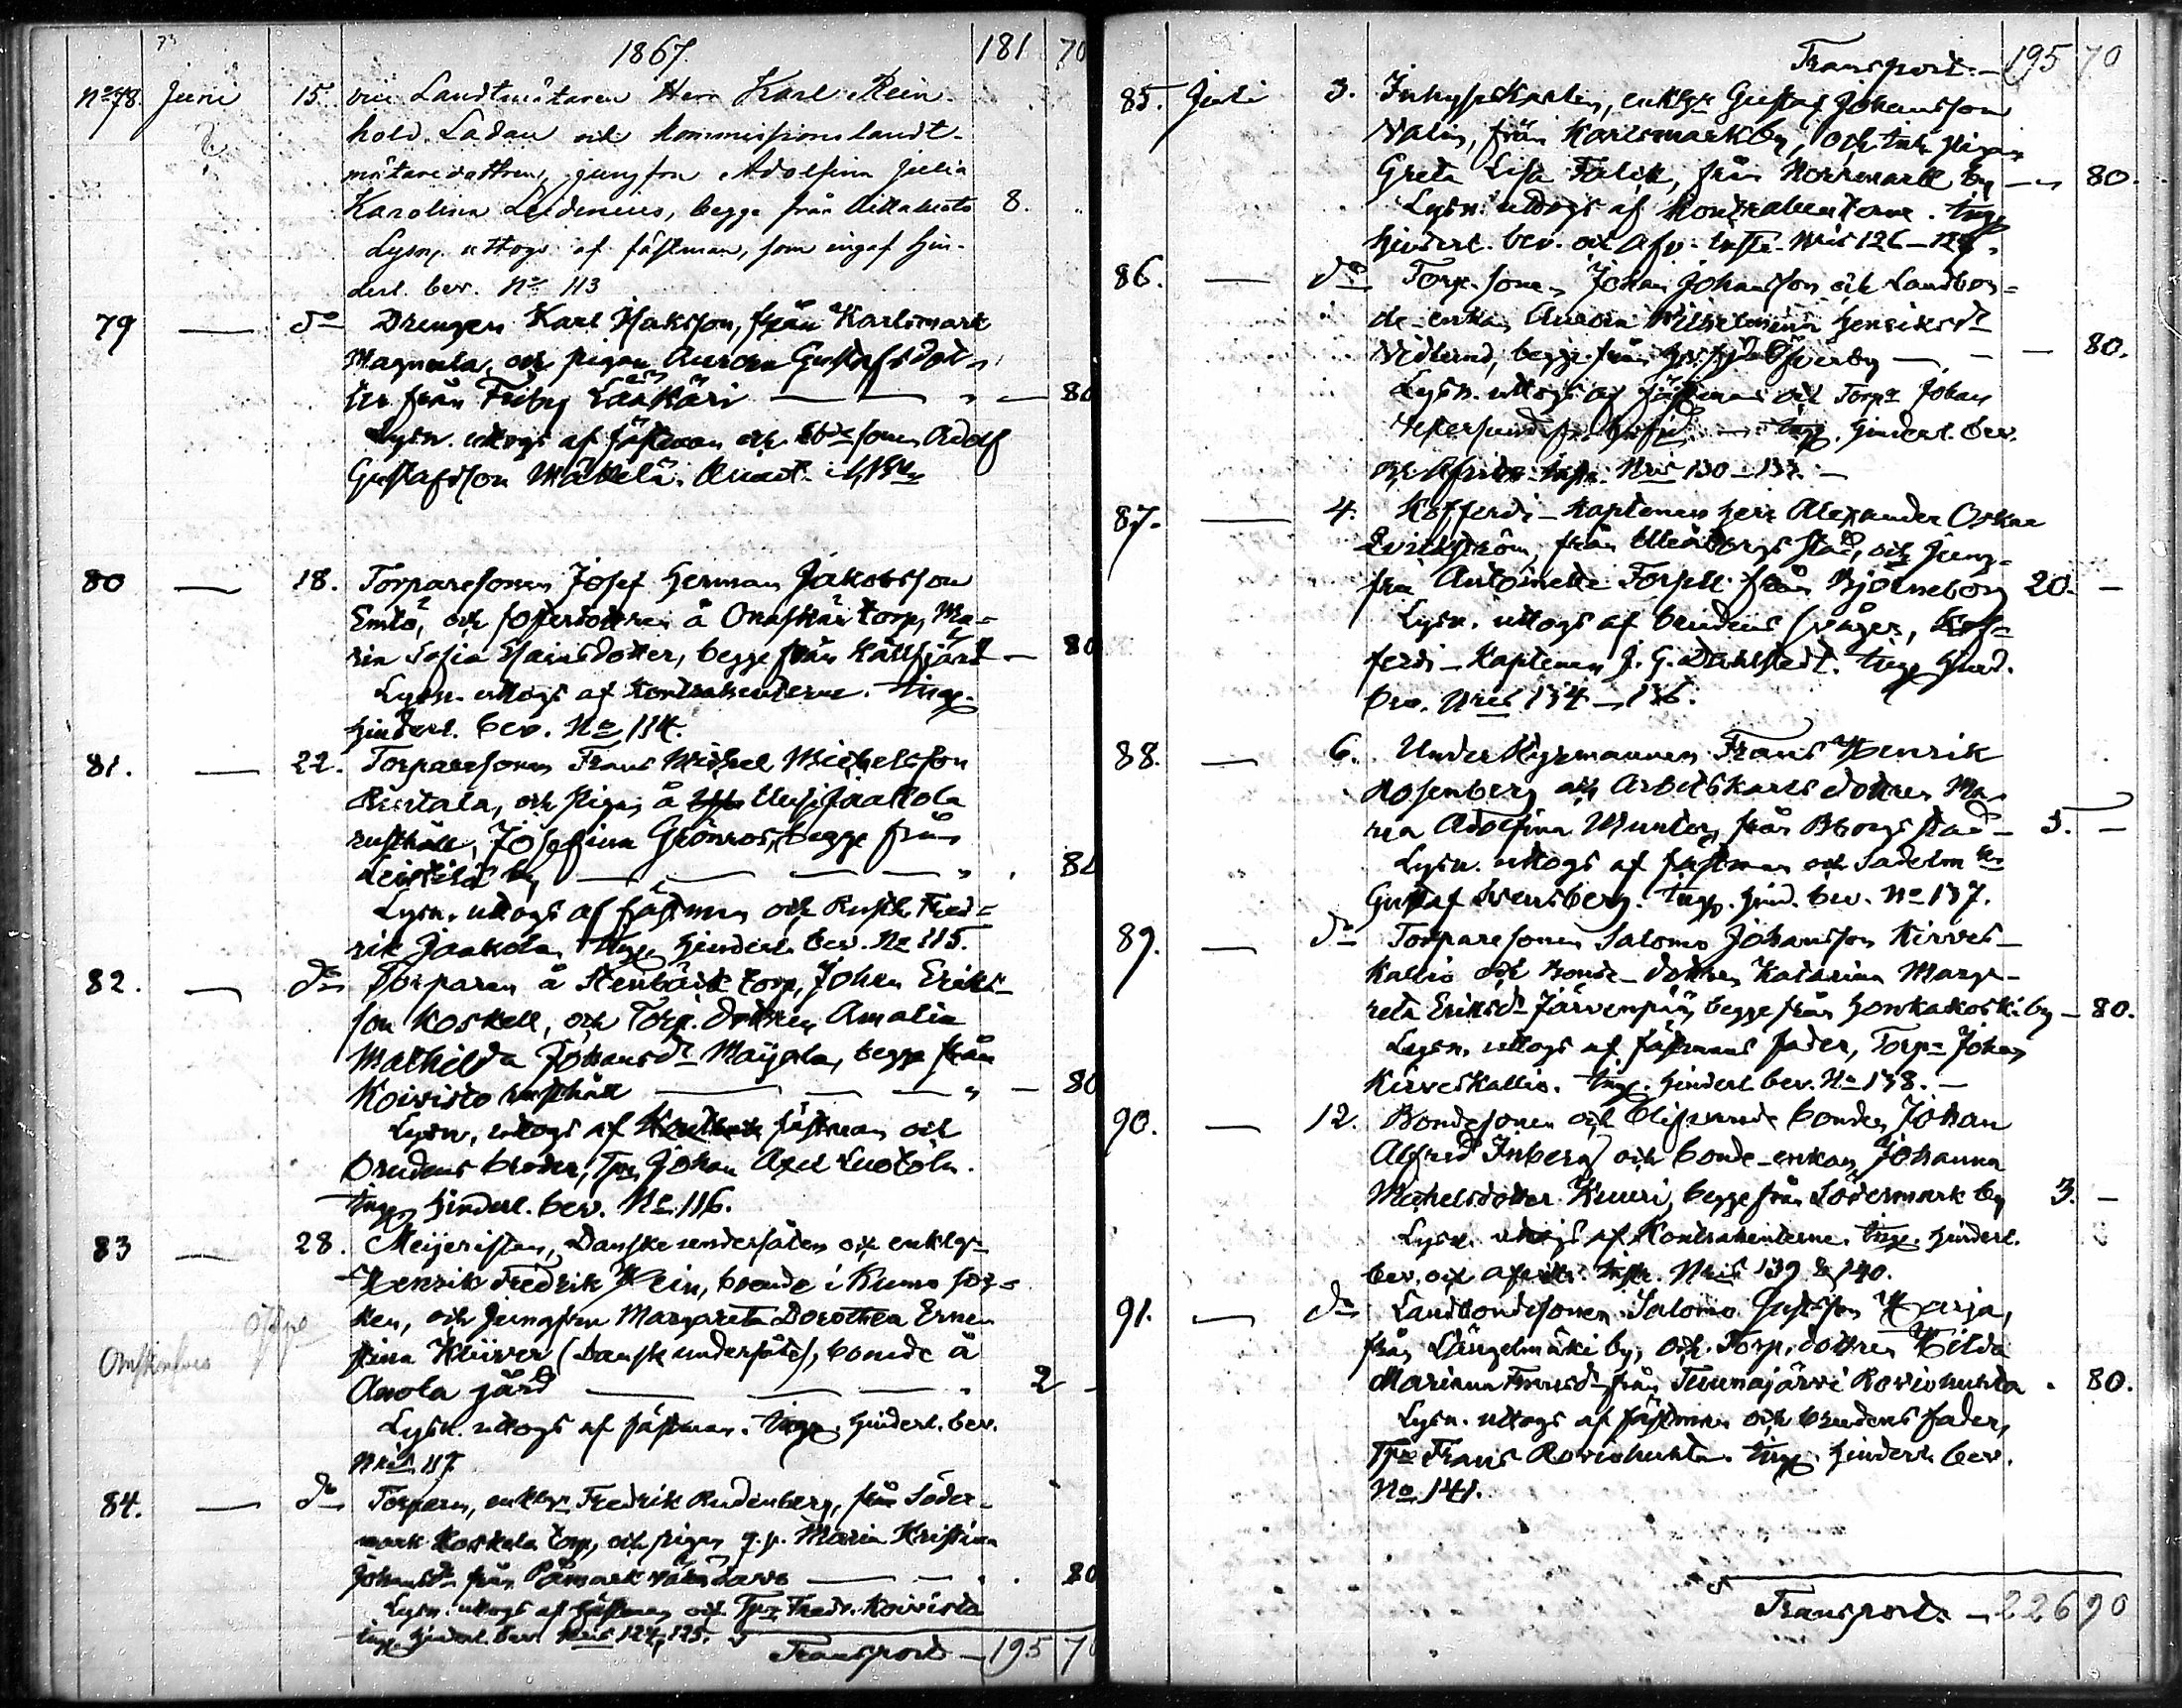 1867. 181 70
No 78. Juni 15. vice Landtmätaren Herr Karl Rein-
hold Ladau och kommissions landt-
mätaredottren, jungfru Adolfina Julia
Karolina Leidenius, begge från 8.
Lysn. uttogs af fästman, som ingaf hin-
derl. bev. No 113
79 — do Drengen Karl Isaksson, från Karlsmark
Magnula, och pigan Aurora Gustafsdot-
ter från Friby Laaskari — 80
Lysn. uttogs af fästman och sonen Adolf
Gustafsson Mäkelä.
80 — 18. Torparesonen Josef Herman Jakobsson
och dottren å torp, Ma-
ria Sofia Esaiasdotter, begge från — 80
Lysn. uttogs af Kontrahenterne. Ingo.
hinderl. bev. No 114.
81. — 22. Torparesonen Frans Michel Michelsson
och pigan å Uusijaakola
rusthåll, Josefina Grönroos, begge från
Leistilä by — 80
Lysn. uttogs af fästman och Rusth. Fred-
rik Jaakola. Ingo. hinderl. bev. No 115.
82. — do Torparen å Stenbäck torp, Johan Eriks-
son Koskell, och Torp. dottren Amalia
Mathilda Johansdr begge från
Koivisto rusthåll — 80
Lysn. uttogs af fästman och
brudens broder, Tpn Johan Axel
Ingo. hinderl. bev. No 116.
83 — 28. Meijeristen, Danske undersåten och enkl.
Henrik Fredrik Hein, boende i Kumo soc-
ken, och Jungfrun Margareta Dorothea Erne-
stina Klüver (Dansk undersåte), boende å
Anola gård — 2 -
Lysn. uttogs af fästman. Ingo. hinderl. bev.
No 117
84. — do Torparen, enkl. Fredrik Rudenberg, från Söder-
mark Koskela torp, och pigan Maria Kristina
Johansdr från Påmark — 80
Lysn. uttogs af fästman och Tpn Fredr. Koivisto
Ingo. hinderl. bev. Nris 124, 125.
Transport — 195 70
Transport. — 195 70
85. Juli 3. Inhyseskarlen, enkl. Gustaf Johansson
Valin, från Karlsmark by, och inh. pigan
Greta Lisa Falck, från Norrmark by — 80.
Lysn. uttogs af Kontrahenterne. Ingo
hinderl. bev. och Nris 126 — 129.
86. — do Torp. sonen Johan Johansson och Landbon-
de-enkan Aurora Wilhelmina Henriksdr
Vidlund, begge från Öfverby — 80.
Lysn. uttogs af fästman och Torpn Johan
Ingo. hinderl. bev.
Nris 130 — 133. —
87. — 4. Kofferdi-Kaptenen herr Alexander Oskar
Qvickström, från Uleåborgs stad, och Jung-
fru Antoinette Forsell från Björneborg 20. —
Lysn. uttogs af brudens svåger, Kof-
ferdi-Kaptenen J. G. Dahlstedt. Ingo. hind.
bev. Nris 134 — 136.
88. — 6. Understyrmannen Frans Henrik
Rosenberg och Arbetskarls dottren Ma-
ria Adolfina Munter, från Bborgs stad — 5. —
Lysn. uttogs af fästman och Sadelm.
Gustaf Svensberg. Ingo. hind. bev. No 137.
89. — do Torparesonen Salomo Johansson Kirves-
kallio och Bonde-dottren Katarina Marga-
reta Eriksdr Järvenpää, begge från Honkakoski by — 80.
Lysn. uttogs af fästmans fader, Torpn Johan
Kirveskallio. Ingo. hinderl. bev. No 138. —
90. — 12. Bondesonen och blifvande bonden Johan
Alfred Inberg och bonde-enkan Johanna
Michelsdotter Kuuri, begge från Södermark by 3. —
Lysn. uttogs af Kontrahenterne. Ingo. hinderl.
bev. och Nris 139 & 140.
91. — do Landbondesonen Salomo Gustafsson Harja,
från Längelmäki by, och Torp. dottren Hilda
Marianna Fransdr från Tuunajärvi Roviohuhta . 80.
Lysn. uttogs af fästman och brudens fader,
Tpn Frans Roviohuhta. Ingo. hinderl. bev.
No 141.
Transport. — 226 90